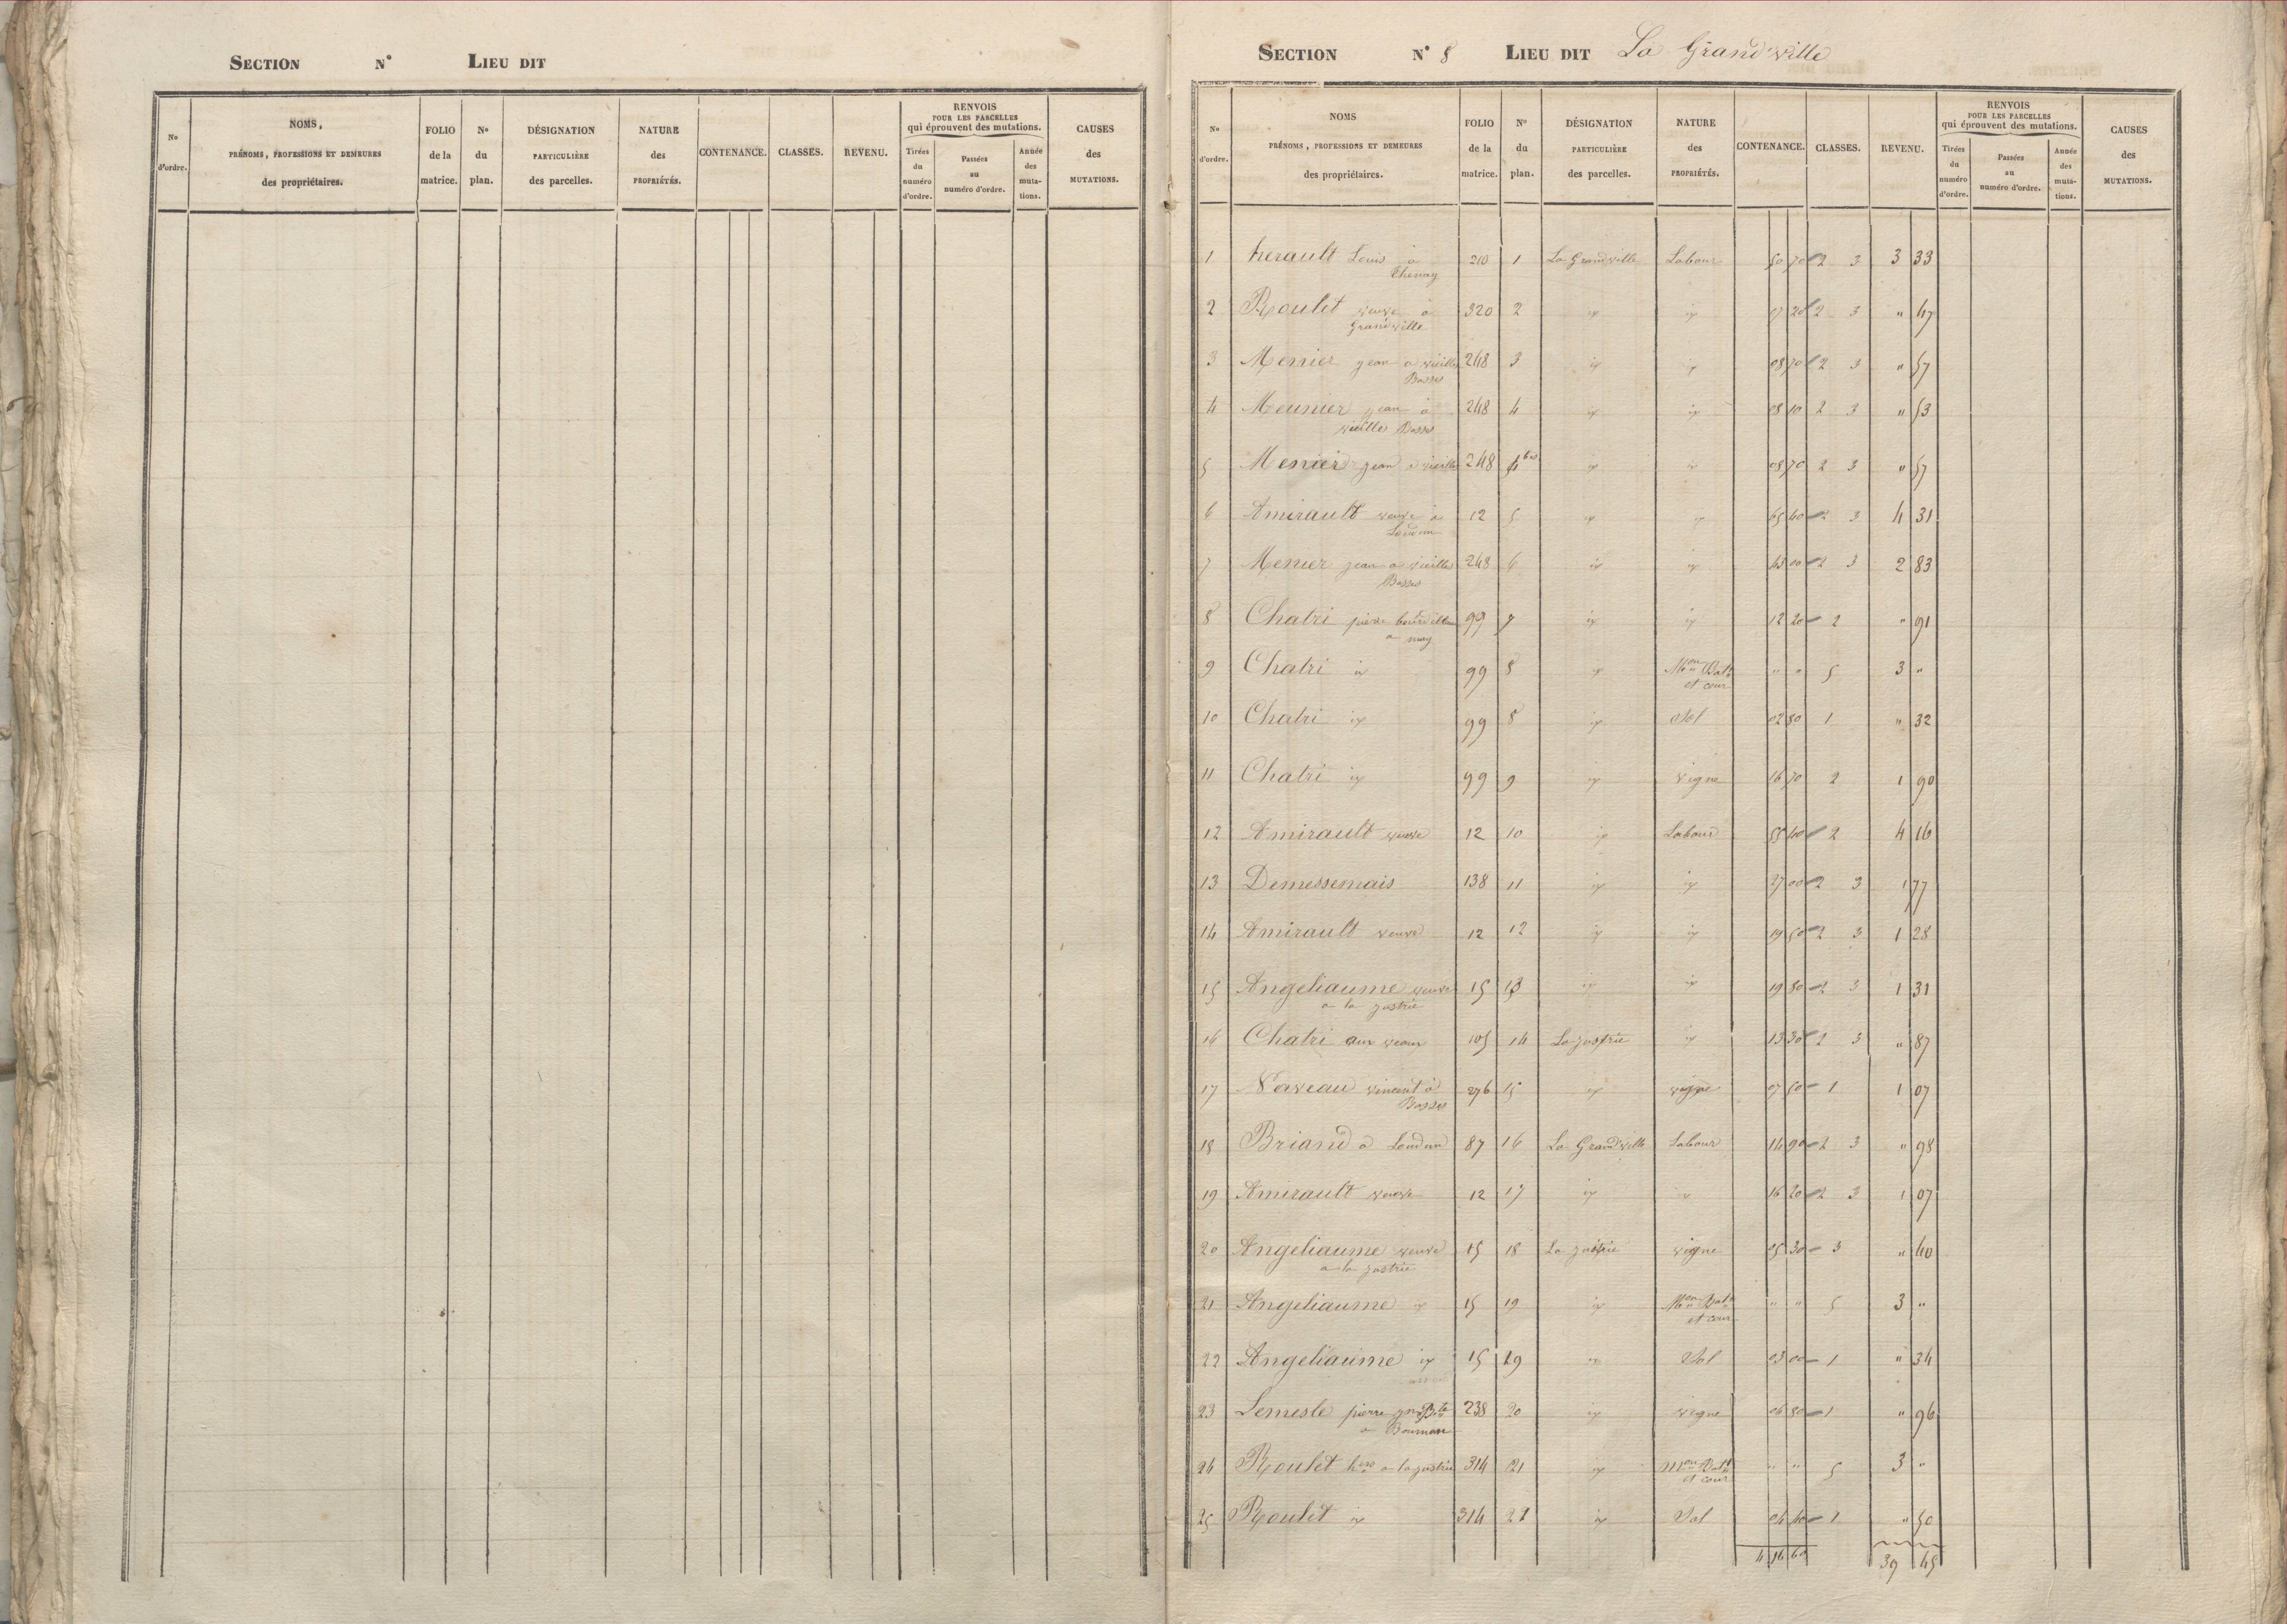 SECTION N° LIEU DIT
No d'ordre. NOMS, PRÉNOMS, PROFESSIONS ET DEMEURES des propriétaires. FOLIO de la matrice. No du plan. DÉSIGNATION PARTICULIÈRE des parcelles. NATURE des PROPRIÉTÉS. CONTENANCE. CLASSES. REVENU. RENVOIS POUR LES PARCELLES qui éprouvent des mutations. Tirées du numéro d'ordre. Passées au numéro d'ordre. Année des mutations. CAUSES des MUTATIONS.
SECTION N° 8 LIEU DIT La Grand'ville
No d'ordre. NOMS PRÉNOMS, PROFESSIONS ET DEMEURES des propriétaires. FOLIO de la matrice. No du plan. DÉSIGNATION PARTICULIÈRE des parcelles. NATURE des PROPRIÉTÉS. CONTENANCE. CLASSES. REVENU. RENVOIS POUR LES PARCELLES qui éprouvent des mutations. Tirées du numéro d'ordre. Passées au numéro d'ordre. Année des mutations. CAUSES des MUTATIONS.
1 herault Louis à 210 1 La Grandville Labour 50 70 2 3 3 33
Thenay
2 Roulet veuve à 320 2 id id 07 20 2 3 " 47
Grandville
3 Menier jean a vieille 248 3 id id 08 70 2 3 " 57
Basses
4 Meunier jean à 248 4 id id 08 10 2 3 " 53
vieilles Basses
5 Menier jean a vieille 248 4 bis id id 08 70 2 3 " 57
6 Amirault veuve a 12 5 id id 65 60 2 3 4 31
Loudun
7 Menier jean a vieille 248 6 id id 43 00 2 3 2 83
Basses
8 Chatri pierre 99 7 id id 12 20 2 " 91
9 Chatri id 99 8 id Mon Bat " " 5 3 "
et cour
10 Chatri id 99 8 id Sol 02 80 1 " 32
11 Chatri id 99 9 id vigne 16 70 2 1 90
12 Amirault veuve 12 10 id Labour 55 40 2 4 16
13 Demessemais 138 11 id id 27 00 2 3 1 77
14 Amirault veuve 12 12 id id 19 50 2 3 1 28
15 Angeliaume veuve 15 13 id id 19 80 2 3 1 31
a la jastrie
16 Chatri aux veaux 105 14 La jastrie id 13 30 2 3 " 87
17 Naveau vincent à 276 15 id vigne 07 50 1 1 07
Basses
18 Briand à Loudun 87 16 La Grand'ville Labour 14 90 2 3 " 98
19 Amirault veuve 12 17 id id 16 20 2 3 1 07
20 Angeliaume veuve 15 18 La jastrie vigne 05 30 3 " 40
a la jastrie
21 Angeliaume id 15 19 id Mon Bat " " 5 3 "
et cour
22 Angeliaume id 15 19 id Sol 03 00 1 " 34
23 Lemesle pierre 238 20 id vigne 06 80 1 " 96
a Bournan
24 Roulet hers a la jastrie 314 21 id Mon Bat " " 5 3 "
et cour
25 Roulet id 314 21 id Sol 04 40 1 " 50
4 16 60 39 45